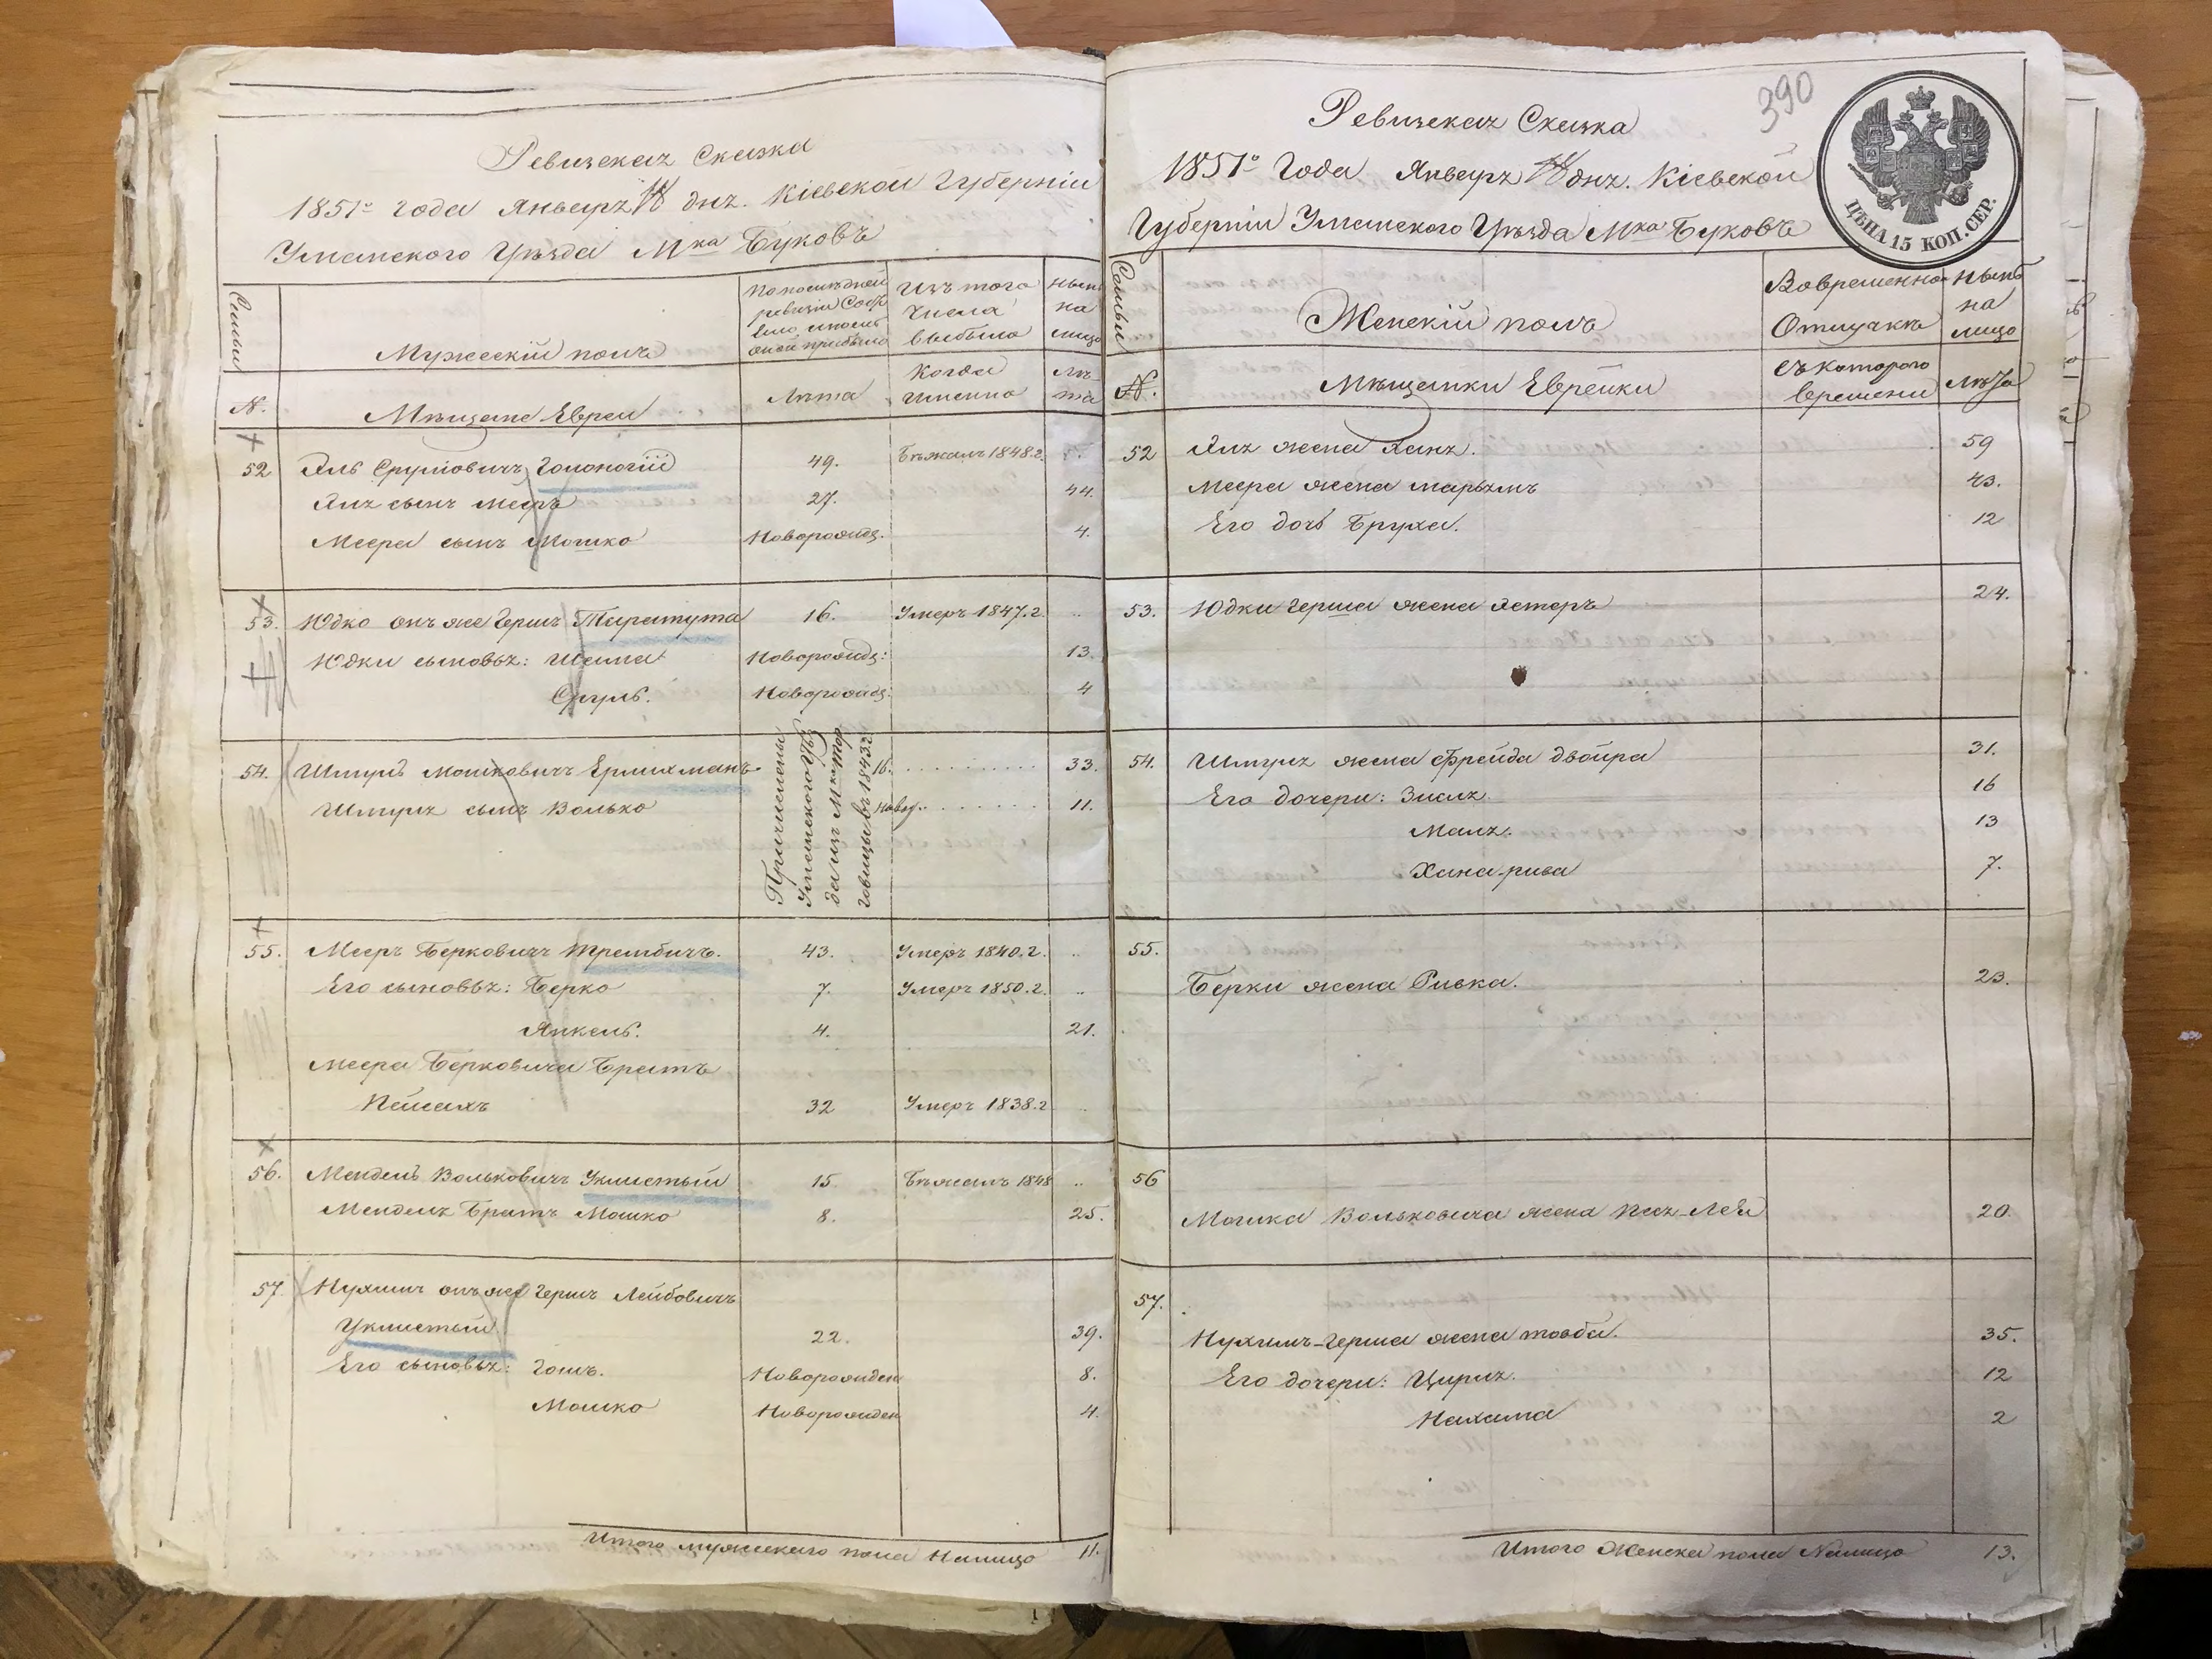 Ревизская Сказка
1851го года Января 18 дня. Кіевской Губерніи
Уманского Уѣзда Мка Буковъ
Семьи
Мужескій полъ
По последней ревизіи Состояло и после оной прибыло
Изъ того числа выбыло
Нынѣ на лицо
№.
Мѣщане Евреи
Лѣта
Когда именно
Лѣта
52 Янъ Сруліовичъ Голоногій 49. Бѣжалъ 1848.г.
сынъ Мееръ 27. 44.
Меера сынъ Мошко Новорожд. 4.
53. Юдко онъ же Гершъ Таратута 16. Умеръ 1847.г. ..
Юдки сыновья: Шама Новорожд: 13.
Сруль. Новорожд: 4
54. Шмуль Мошковичъ Ермихманъ 16. 33.
Шмуля сынъ Волько Новор. 11.
Причислены
Уманского Уѣз
да изъ Мка Тор
говицы въ 1843.г.
55. Мееръ Берковичъ Трембичъ. 43. Умеръ 1840.г. ..
Его сыновья: Берко 7. Умеръ 1850.г. ..
Янкель. 4. 21.
Меера Берковича Братъ
Пейсахъ 32 Умеръ 1838.г ..
56. Мендель Вольковичъ Уклистый 15. Бѣжалъ 1848 ..
Менделя Братъ Мошко 8. 25.
57. Нухимъ онъ же Гершъ Лейбовичъ
Уклистый 22. 39.
Его сыновья: Гошъ. Новорожден 8.
Мошко Новорожден 4.
Итого мужескаго пола Налицо 11.
390
Ревизская Сказка
1851го Года Января 18 дня. Кіевской
Губерніи Уманского Уѣзда Мка Буковъ
ЦѢНА 15 КОП. СЕР.
Семьи
Женскій полъ
Вовременной Отлучкѣ
Нынѣ на лицо
№.
Мѣщанки Еврейки
съ Которого времени
Лѣта
52 жена Ханя. 59
Меера жена Марьямъ 43.
Его дочь Бруха. 12
53. Юдки Герша жена Эстеръ 24.
54. Шмуля жена Фрейда Двойра 31.
Его дочери: Зисля. 16
Маля. 13
Хана-рива 7.
55.
Берки жена Ривка. 23.
56
Мошка Вольковича жена Пея-Лея 20.
57.
Нухимъ-Герша жена товба. 35.
Его дочери: Циря. 12
Нахама 2
Итого Женска пола Налицо 13.